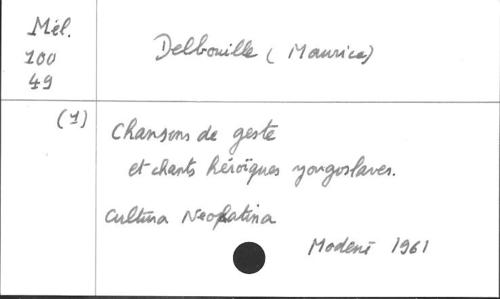 Mél.
100
49
Delbouille (Maurice)
(1)
Chansons de geste
et chants héroïques yougoslaves.
Cultura Neolatina
Modène 1961